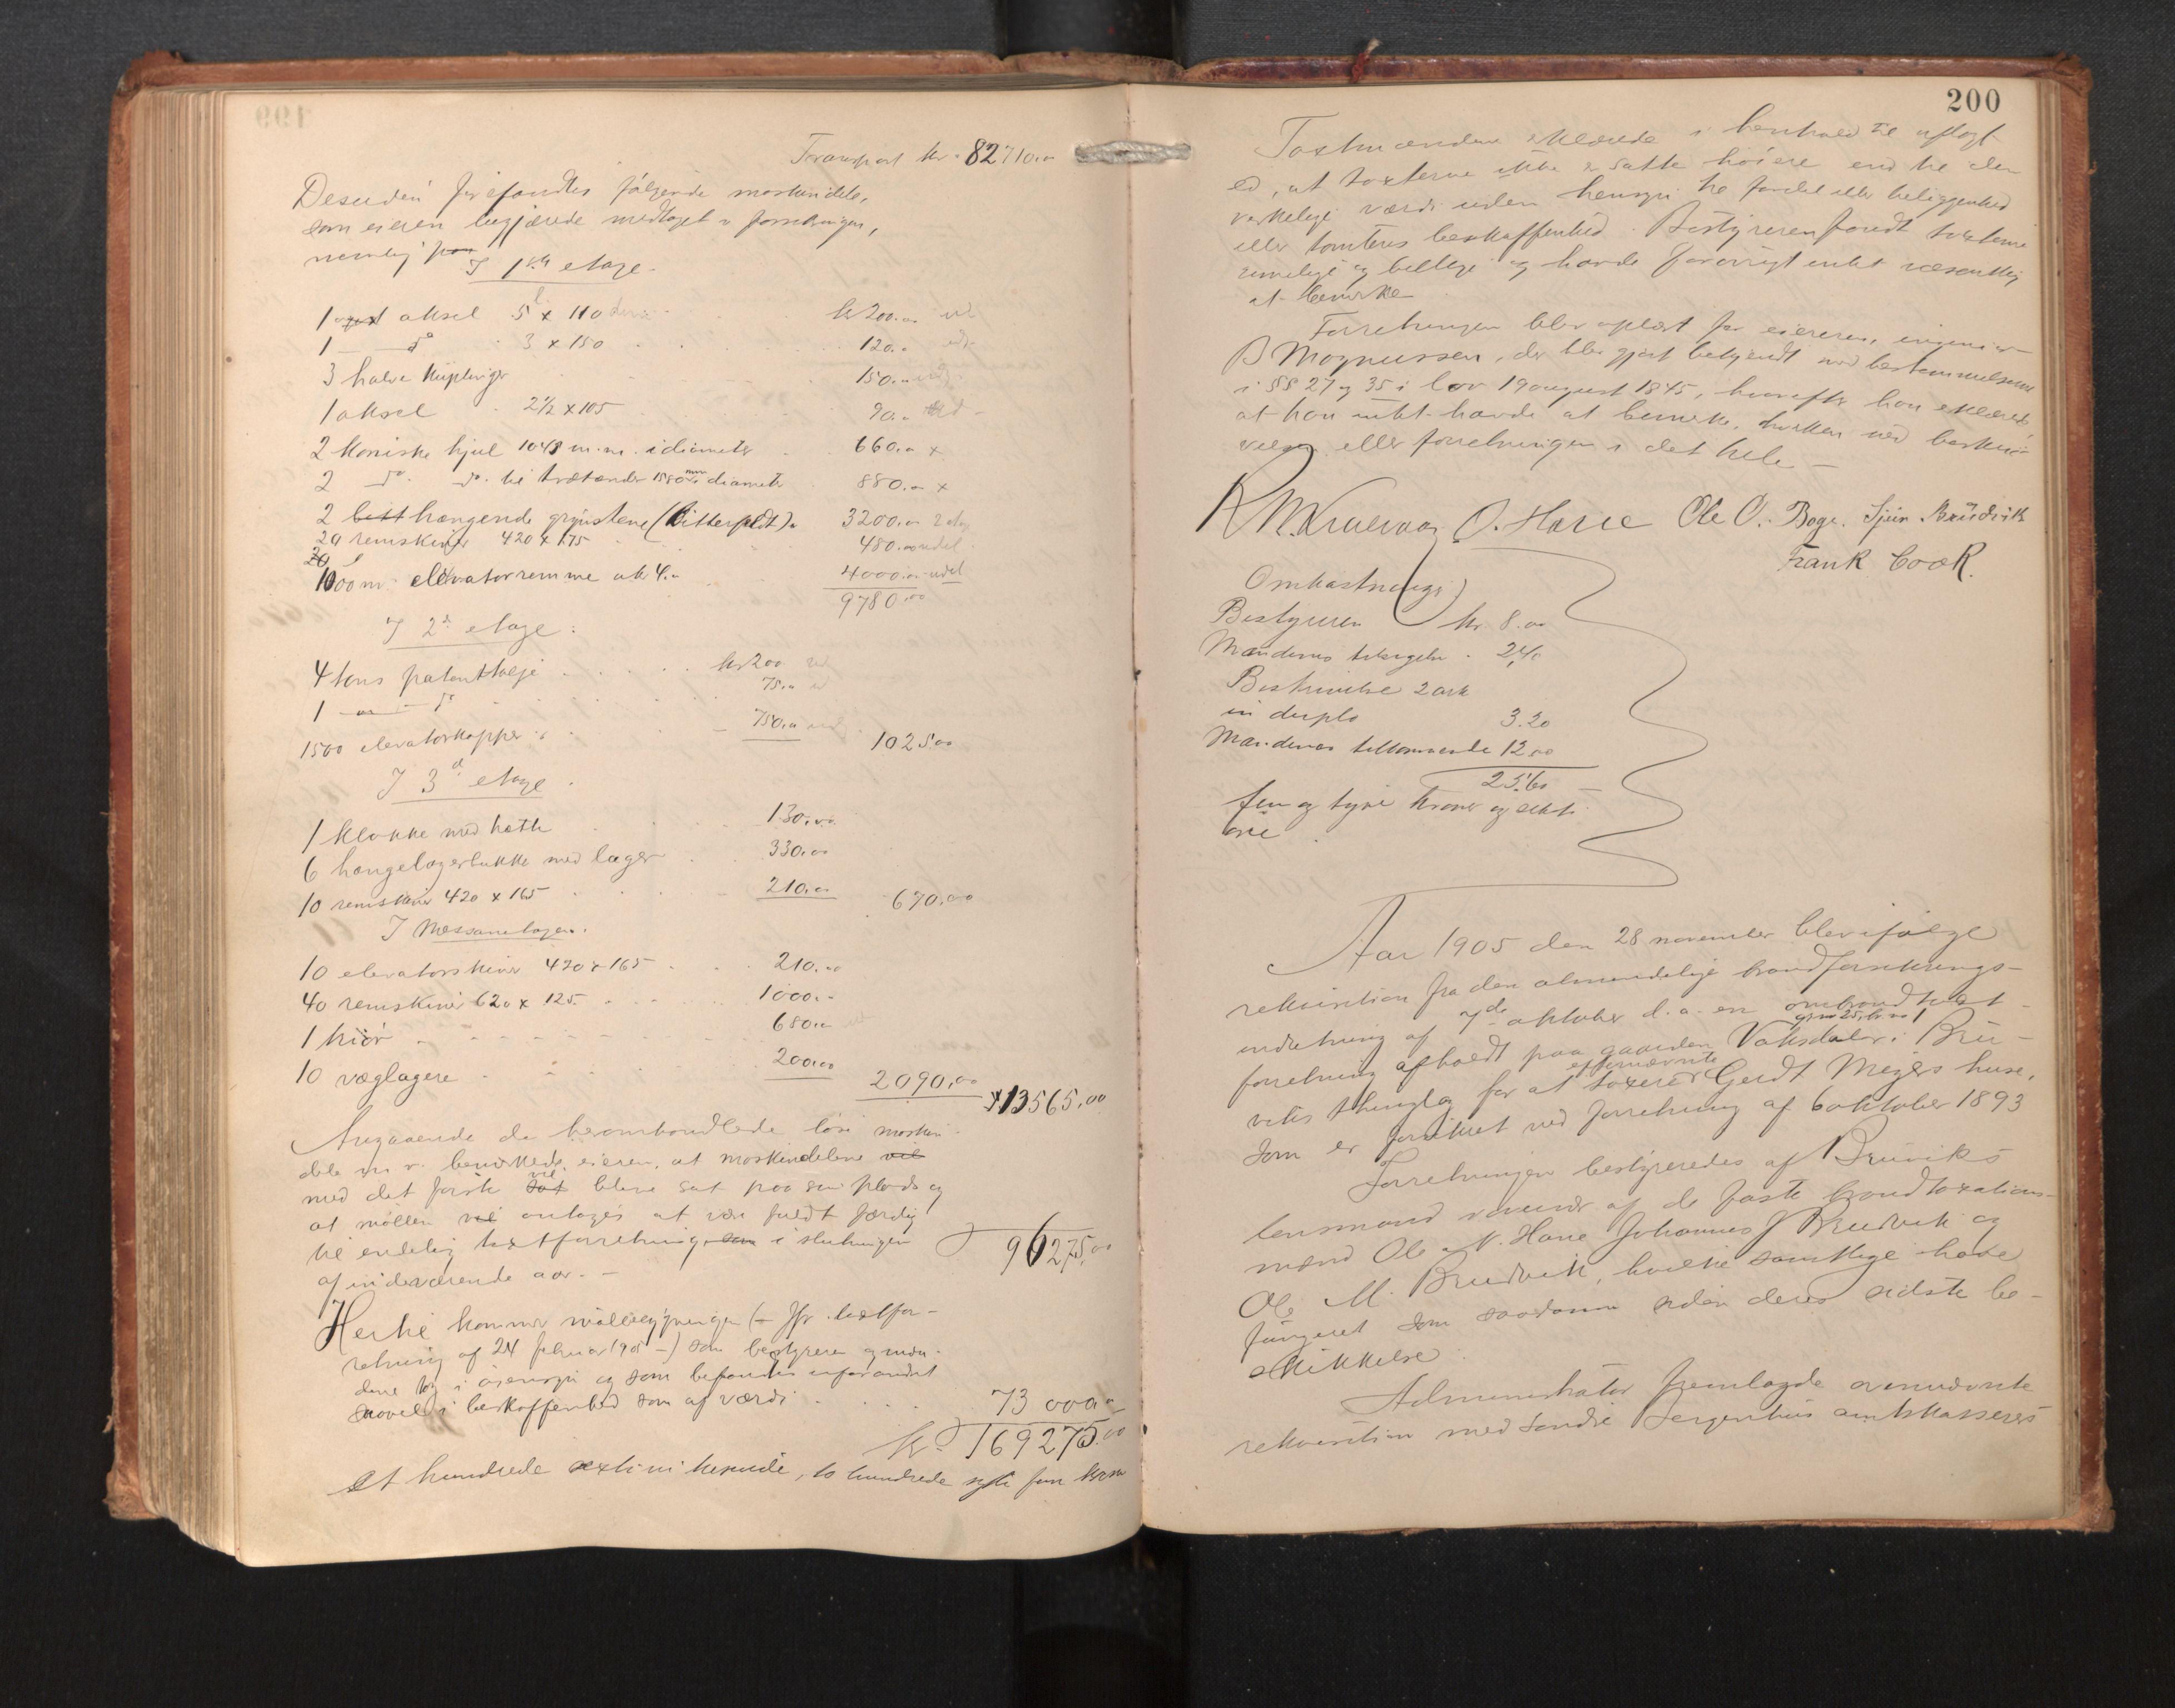 Transport kr. 82710.00
Desuden forefandtes følgende maskindele,
som eieren begjærede medtaget i forretningen,
nemlig fra
I 1ste etage.
1 aksel 5 x 110 kr 200.00
1 — do 3 x 150 120.00
3 halve kuplinger 150.00
1 aksel 2½ x 105 90.00
2 koniske hjul 1048 m.m. i diameter 660.00 x
2 do. do. til trætænder 1580 mm diameter 880.00 x
2 hængende grynstene (Bitterfeldt) 3200.00
20 remskiver 420 x 175 480.00
1000 m. elevatorremme a kr 4.00 4000.00
9780.00
I 2d etage:
4 tons patenttalje kr 200
1 — do 75.00
1500 elevatorkopper 750.00 1025.00
I 3d etage.
1 klokke med hætte 130.00
6 hængelagerbukke med lager 330.00
10 remskiver 420 x 165 210.00 670.00
I Messanetagen.
10 elevatorskiver 420 x 165 210.00
40 remskiver 620 x 125 1000.-
1 kiør 680.00
10 væglagere 200.00
2090.00 13565.00
Angaaende de heromhandlede løse maskin-
dele m.v. bemærkede eieren, at maskindelene vil
med det første vil blive sat paa sin plads og
at møllen antages at være fuldt færdig
til endelig taxtforretning i slutningen
af indeværende aar. — 96275.00
Hertil kommer møllebygningen (— jfr. taxtfor-
retning af 24 februar 1905 —) som bestyreren og mæn-
dene tog i øiensyn og som befandtes uforandret
saavel i beskaffenhed som af værdi. 73000.00
kr. 169275.00
et hundrede sextini tusinde, to hundrede sytti fem kroner
200
Taxtmændene erklærede i henhold til aflagt
ed, at taxterne ikke er satte høiere end til den
virkelige værdi uden hensyn til fordel eller beliggenhed
eller tomtens beskaffenhed. Bestyreren fandt taxterne
rimelige og billige og havde forøvrigt intet væsentlig
at bemærke
Forretningen blev oplæst for eieren, ingeniør
B Magnussen, der blev gjort bekjendt med bestemmelserne
i §§ 27 og 35 i lov 19 august 1845, hvorefter han erklærede,
at han intet havde at bemærke, hverken ved beskri-
velsen eller forretningen i det hele —
O. Hane Ole O. Boge. Sjur Brüdvik
Frank Cook.
Omkostninger
Bestyreren kr. 8.00
Mændenes 2,40
Beskrivelse 2 ark
in duplo 3.20
Mændenes tilkommende 12.00
25.60
fem og tyve kroner og seksti
øre
Aar 1905 den 28 november blev ifølge
rekvisition fra den almindelige brandforsikrings-
indretning af 7de oktober d.a. en ombrandtaxt-
forretning afholdt paa gaarden Vaksdal gno 25, br no 1 i Bru-
viks thinglag for at taxere efternævnte Gerdt Meyers huse,
som er forsikret ved forretning af 6 oktober 1893
Forretningen bestyreredes af Bruviks
lensmand af de faste brandtaxations-
mænd Ole N. Hane Johannes J Bruvik og
Ole M. Bruvik, hvilke samtlige have
fungeret som saadanne siden deres sidste be-
skikkelse.
Administrator fremlagde ovennævnte
rekvisition med Søndre Bergenhus amtskasserers